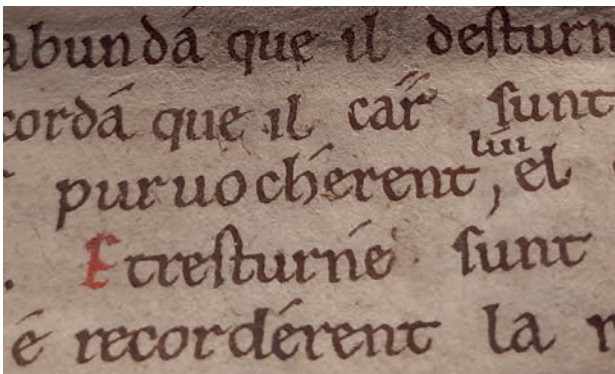 abundá que il desturn
cordá que il car sunt
puruochérent lui, el
. E tresturné sunt
é recordérent la